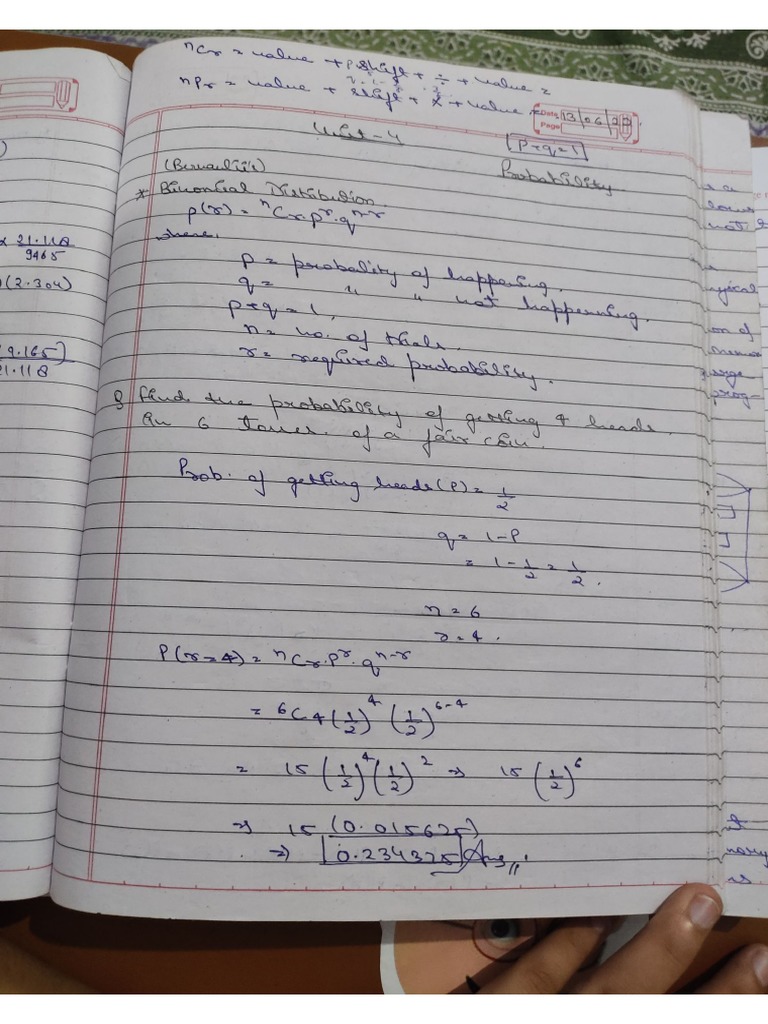 nCr = value + shift + ÷ + value =
nPr = value + shift + × + value =
Date 13 06
Page
Unit - 4
P + q = 1
(Bernoulli's)
Probability
* Binomial Distribution.
p(r) = nCr p^r . q^n-r
where,
p = probality of happening.
q = " " not happening.
p + q = 1,
n = no. of trials.
r = required probability.
Q Find the probability of getting 4 heads
in 6 tosses of a fair coin.
Prob. of getting heads (P) = 1/2
q = 1 - P
= 1 - 1/2 = 1/2.
n = 6
r = 4.
P(r = 4) = nCr . P^r . q^n-r
= 6C4 (1/2)^4 (1/2)^6-4
= 15 (1/2)^4 (1/2)^2 ⇒ 15 (1/2)^6
⇒ 15 (0.015625)
⇒ 0.234375 Ans
× 21.118
9465
(2.304)
(9.165)
21.118